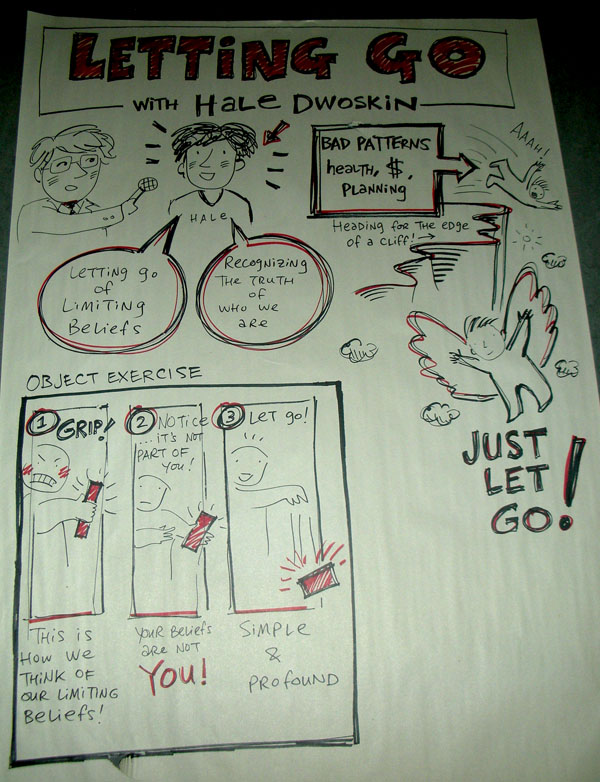 LETTING GO
WITH HALE DWOSKIN
HALE
LETTING GO
OF
LIMITING
BELIEFS
RECOGNIZING
THE TRUTH
OF
WHO WE
ARE
BAD PATTERNS
health, $,
PLANNING
AAAH!
HEADING FOR THE EDGE
OF A CLIFF!
JUST
LET
GO!
OBJECT EXERCISE
1 GRIP!
THIS IS
HOW WE
THINK OF
OUR LIMITING
BELIEFS!
2 NOTICE
...IT'S NOT
PART OF
YOU!
YOUR BELIEFS
ARE NOT
YOU!
3 LET GO!
SIMPLE
&
PROFOUND